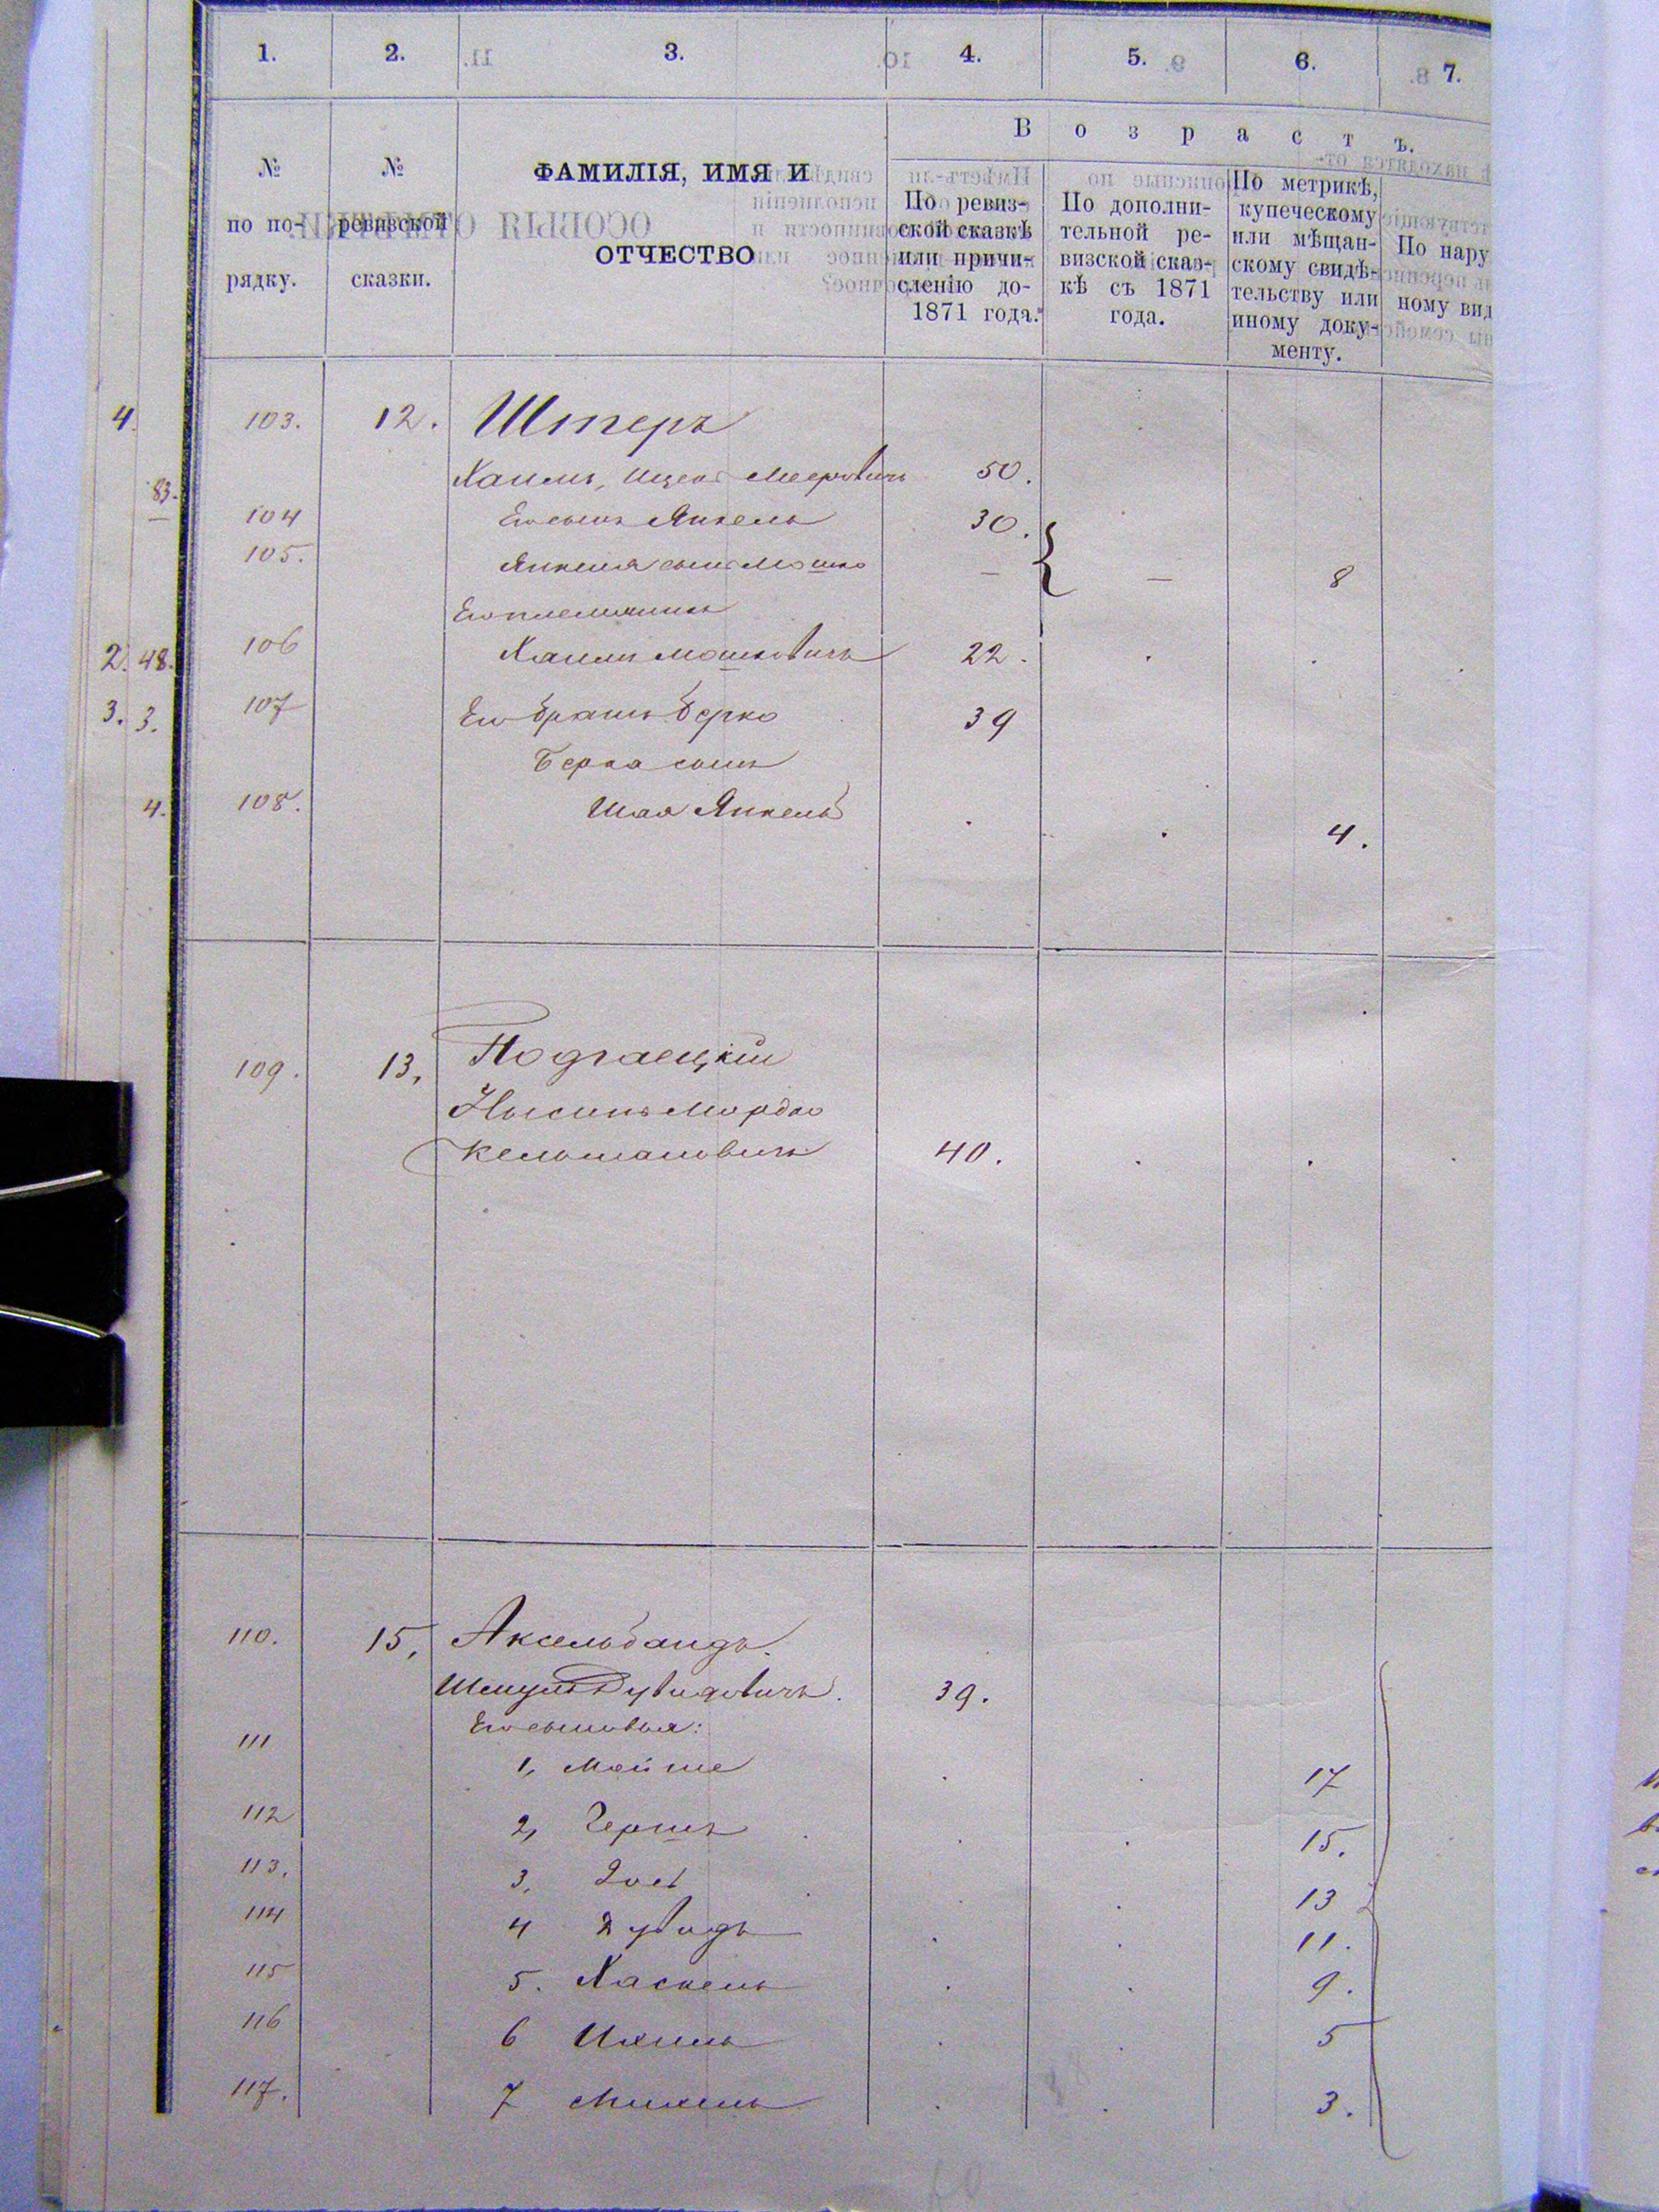 1. 2. 3. 4. 5. 6. 7.
В о з р а с т ъ.
№ по по-рядку.
№ ревизской сказки.
ФАМИЛІЯ, ИМЯ И
ОТЧЕСТВО
По ревиз-
ской сказкѣ
или причи-
сленію до-
1871 года.
По дополни-
тельной ре-
визской сказ-
кѣ съ 1871
года.
По метрикѣ,
купеческому
или мѣщан-
скому свидѣ-
тельству или
иному доку-
менту.
По нару
ному вид
4. 103. 12. Штеръ
83. Хаимъ, Ицекъ Мееровичъ 50.
104 Его сынъ Янкель 30.
105. Янкеля сынъ Мошко — — 8
Его племянникъ
2. 48. 106 Хаимъ Мошковичъ 22.
3. 3. 107 Его братъ Берко 39
Берка сынъ
4. 108. Шая Янкель 4.
109. 13, Подгаецкій
Нысинъ Мордко
Кельмановичъ 40.
110. 15, Аксельбандъ.
Шмуль Дувидовичъ. 39.
Его сыновья:
111 1, Мойше 17
112 2, Гершъ 15.
113. 3, 13
114 4 Дувидъ 11.
115 5. Хаскель 9.
116 6 Ихиль 5
117. 7 Михель 3.